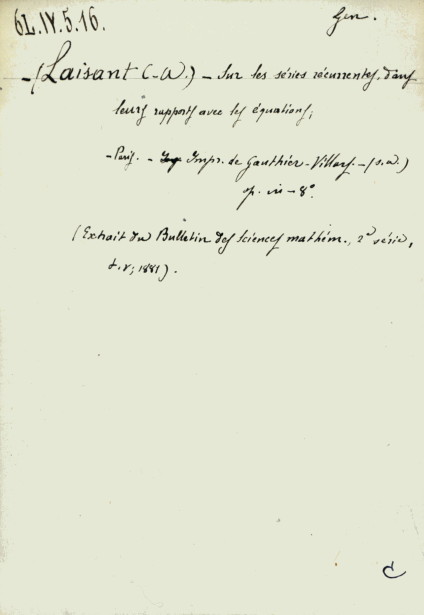 6L.IV.5.16.
Gen.
-(Laisant C-A.) - Sur les séries récurrentes, dans
leurs rapports avec les équations;
- Paris. - Impr. de Gauthier-Villars. - (s.d.)
op. in-8°.
(Extrait du Bulletin des Sciences mathém., 2e série,
t.V; 1881).
C